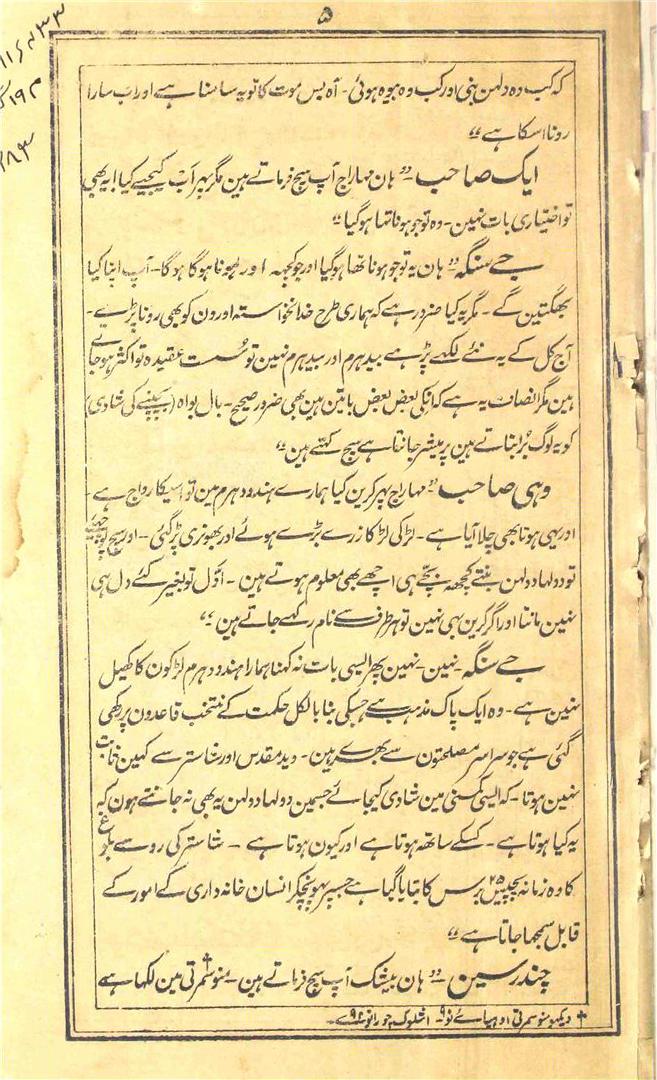 ۵
کہ کب وہ دلہن بنی اور کب وہ بیوہ ہوئی۔ آہ بس موت کا توبہ سامنا ہے اور اب سارا
رونا اسکا ہے“
ایک صاحب ”ہان مہاراج آپ سچ فرماتے ہین مگر پہر آپ کیجیے کیا ایہ بھی
تو اختیاری بات نہین۔ وہ تو جو ہونا تہا ہو گیا“
جے سنگہ ”ہان یہ تو جو ہونا تھا ہو گیا اور جو کچہہ اور ہونا ہو گا ہو گا۔ آپ اپنا کیا
بھگتین گے۔ مگر یہ کیا ضرور ہے کہ ہماری طرح خدانخواستہ اورون کو بھی رونا پڑے۔
آج کل کے یہ نئے لکہے پڑہے بیدہرم اور بیدہرم نہین تو سُست عقیدہ تو اکثر ہو جاتے
ہین مگر انصاف یہ ہے کہ انکی بعض بعض باتین ہین بھی ضرور صحیح۔ بال بواہ (بچپنے کی شادی)
کو یہ لوگ بُرا بتاتے ہین پرمیشر جانتا ہے سچ کہتے ہین“
وہی صاحب ”مہاراج پہر کرین کیا ہمارے ہندو دہرم مین تو اسیکا رواج ہے۔
اور یہی ہوتا بھی چلا آیا ہے۔ لڑکی لڑکا ذرے بڑے ہوئے اور بھونری پڑ گئی۔ اور سچ پوچہیے
تو دولہا دولہن بنتے کچھہ بچّے ہی اچھے بھی معلوم ہوتے ہین۔ اوّل تو بغیر کئے دل ہی
نہین مانتا اور اگر کرین بہی نہین تو ہر طرف سے نام رکہے جاتے ہین“
جے سنگہ۔ نہین۔ نہین پھر ایسی بات نہ کہنا ہمارا ہندو دہرم لڑکون کا کھیل
نہین ہے۔ وہ ایک پاک مذہب ہے جسکی بنا بالکل حکمت کے منتخب قاعدون پر رکھی
گئی ہے جو سراسر مصلحتون سے بھرے ہین۔ وید مقدس اور شاستر سے کہین ثابت
نہین ہوتا۔ کہ ایسی کمسنی مین شادی کیجائے جسمین دولہا دولہن یہ بھی نہ جانتے ہون کہ
یہ کیا ہوتا ہے۔ کسکے ساتھہ ہوتا ہے اور کیون ہوتا ہے۔ شاستر کی رو سے بلوغ
کا وہ زمانہ پچیس ۲۵ برس کا بتایا گیا ہے جسپر پہونچکر انسان خانہ داری کے امور کے
قابل سمجہا جاتا ہے“
چندر سین۔ ”ہان بیشک آپ سچ فرماتے ہین۔ منوسمرتی† مین لکہا ہے
† دیکہو منو سمرتی ادہیائے نو ۹۔ اشلوک چورانوے ۹۴۔